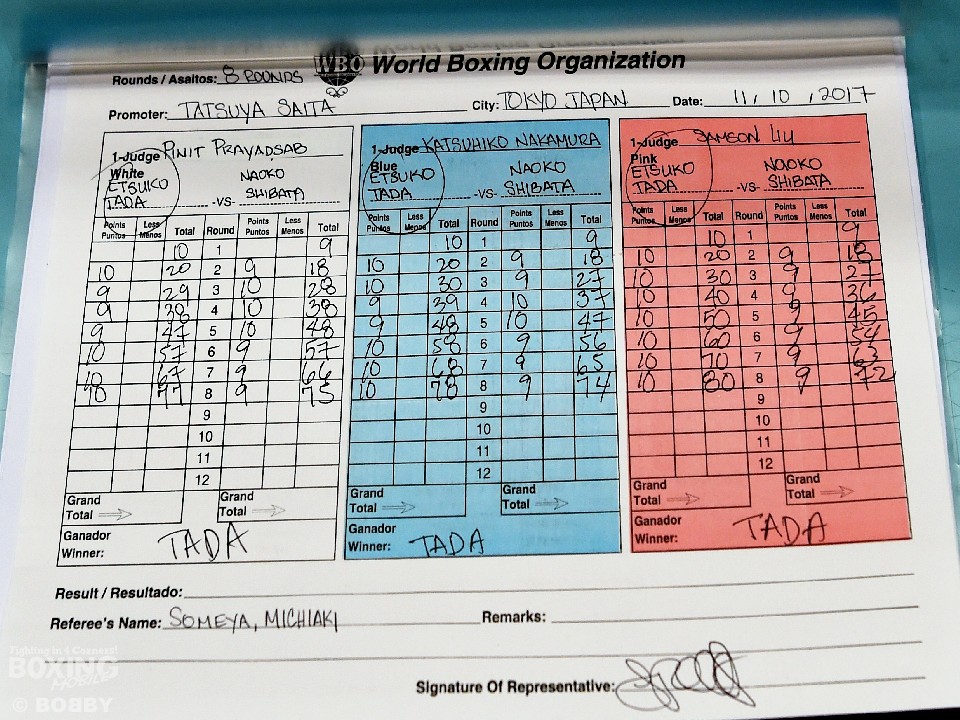 Rounds / Asaltos: 8 ROUNDS WBO World Boxing Organization
Promoter: TATSUYA SAITA City: TOKYO JAPAN Date: 11, 10, 2017
1-Judge PINIT PRAYADSAB
White
ETSUKO TADA -VS- NAOKO SHIBATA
Points Puntos Less Menos Total Round Points Puntos Less Menos Total
10 1 9
10 20 2 9 18
9 29 3 10 28
9 38 4 10 38
9 47 5 10 48
10 57 6 9 57
10 67 7 9 66
10 77 8 9 75
9
10
11
12
Grand Total Grand Total
Ganador
Winner: TADA
1-Judge KATSUHIKO NAKAMURA
Blue
ETSUKO TADA -VS- NAOKO SHIBATA
Points Puntos Less Menos Total Round Points Puntos Less Menos Total
10 1 9
10 20 2 9 18
10 30 3 9 27
9 39 4 10 37
9 48 5 10 47
10 58 6 9 56
10 68 7 9 65
10 78 8 9 74
9
10
11
12
Grand Total Grand Total
Ganador
Winner: TADA
1-Judge SAMSON LIU
Pink
ETSUKO TADA -VS- NAOKO SHIBATA
Points Puntos Less Menos Total Round Points Puntos Less Menos Total
10 1 9
10 20 2 9 18
10 30 3 9 27
10 40 4 9 36
10 50 5 9 45
10 60 6 9 54
10 70 7 9 63
10 80 8 9 72
9
10
11
12
Grand Total Grand Total
Ganador
Winner: TADA
Result / Resultado:
Referee's Name: SOMEYA, MICHIAKI Remarks:
Signature Of Representative:
Fighting in 4 Corners!
BOXING
MOBILE
© BOBBY